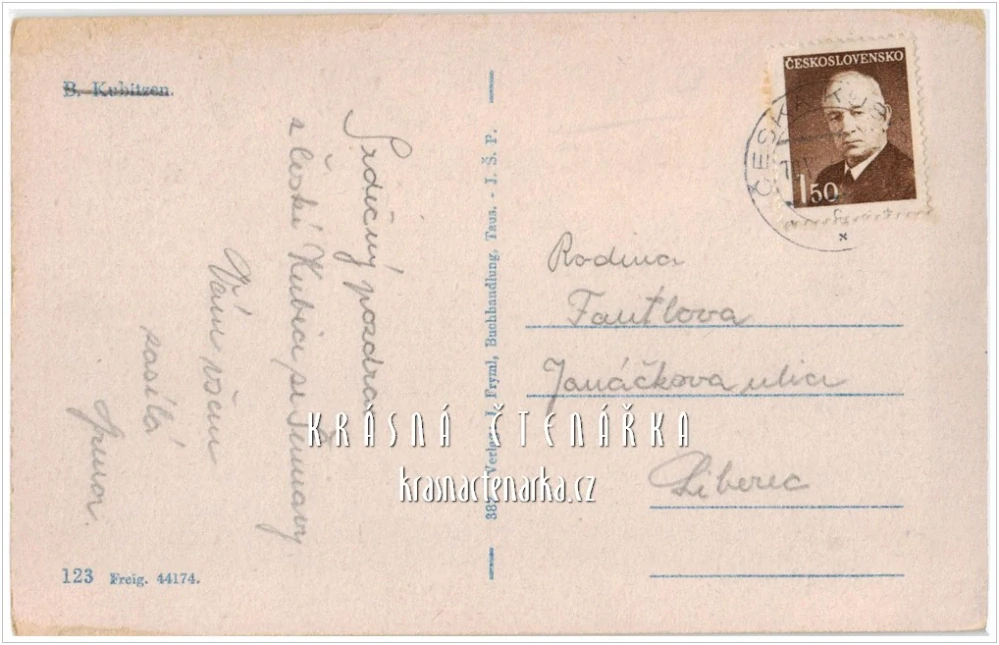 B. Kubitzen.
Srdečný pozdrav
z České Kubice se Šumavy
Vám všem
zasílá
387 Verlag J. Pryml, Buchhandlung, Taus. - J. Š. P.
ČESKOSLOVENSKO
1 50
ČESKÁ
Rodina
Fantlova
Janáčkova ulice
Liberec
KRÁSNÁ ČTENÁŘKA
krasnactenarka.cz
123 Freig. 44174.